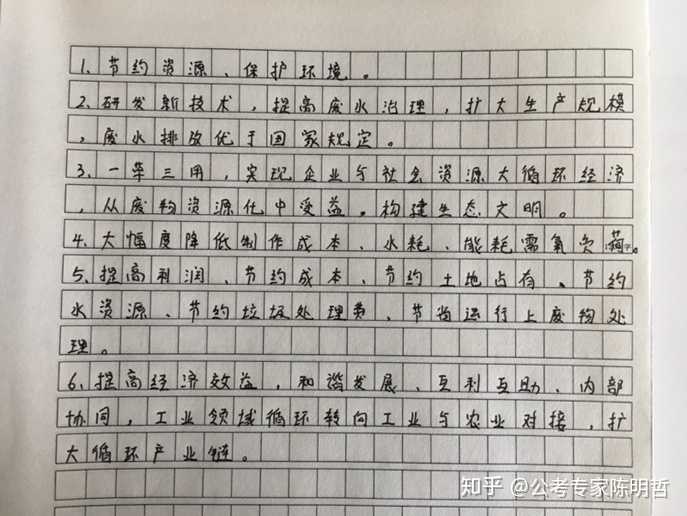 1、节约资源、保护环境。
2、研发新技术，提高废水治理，扩大生产规模
，废水排放优于国家规定。
3、一草三用，实现企业与社会资源大循环经济
，从废物资源化中受益。构建生态文明。
4、大幅度降低制作成本、水耗、能耗需氧负荷。
5、提高利润、节约成本、节约土地占有、节约
水资源、节约垃圾处理费、节省运行上废物处
理。
6、提高经济效益，和谐发展、互利互助、内部
协同，工业领域循环转向工业与农业对接，扩
大循环产业链。
知乎 @公考专家陈明哲